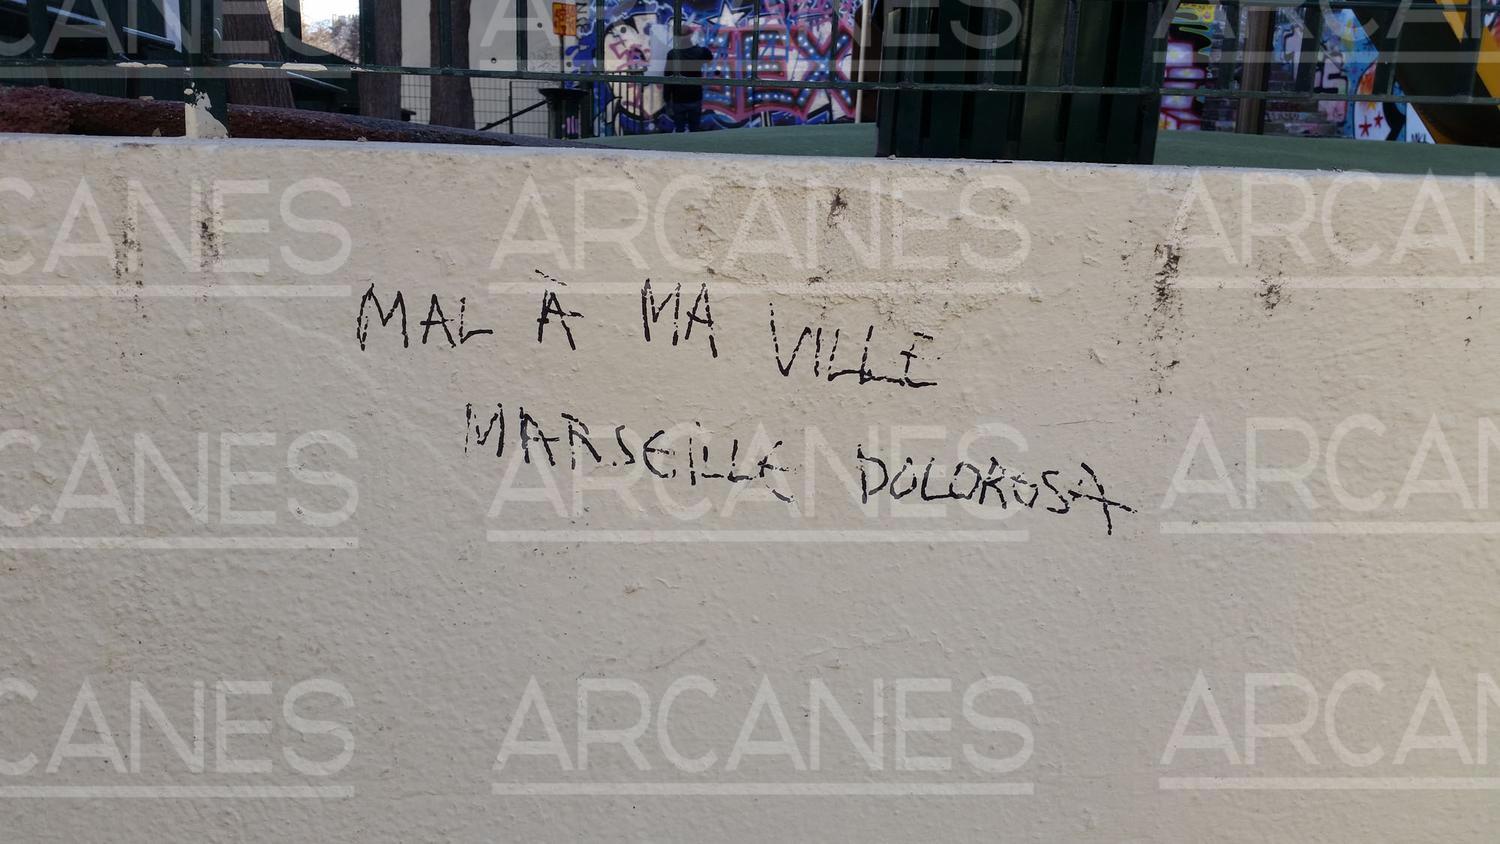 ARCANES ARCANES ARCANES
MAL À MA VILLE
MARSEILLE DOLOROSA
ARCANES ARCANES ARCANES
ARCANES ARCANES ARCANES
ARCANES ARCANES ARCANES